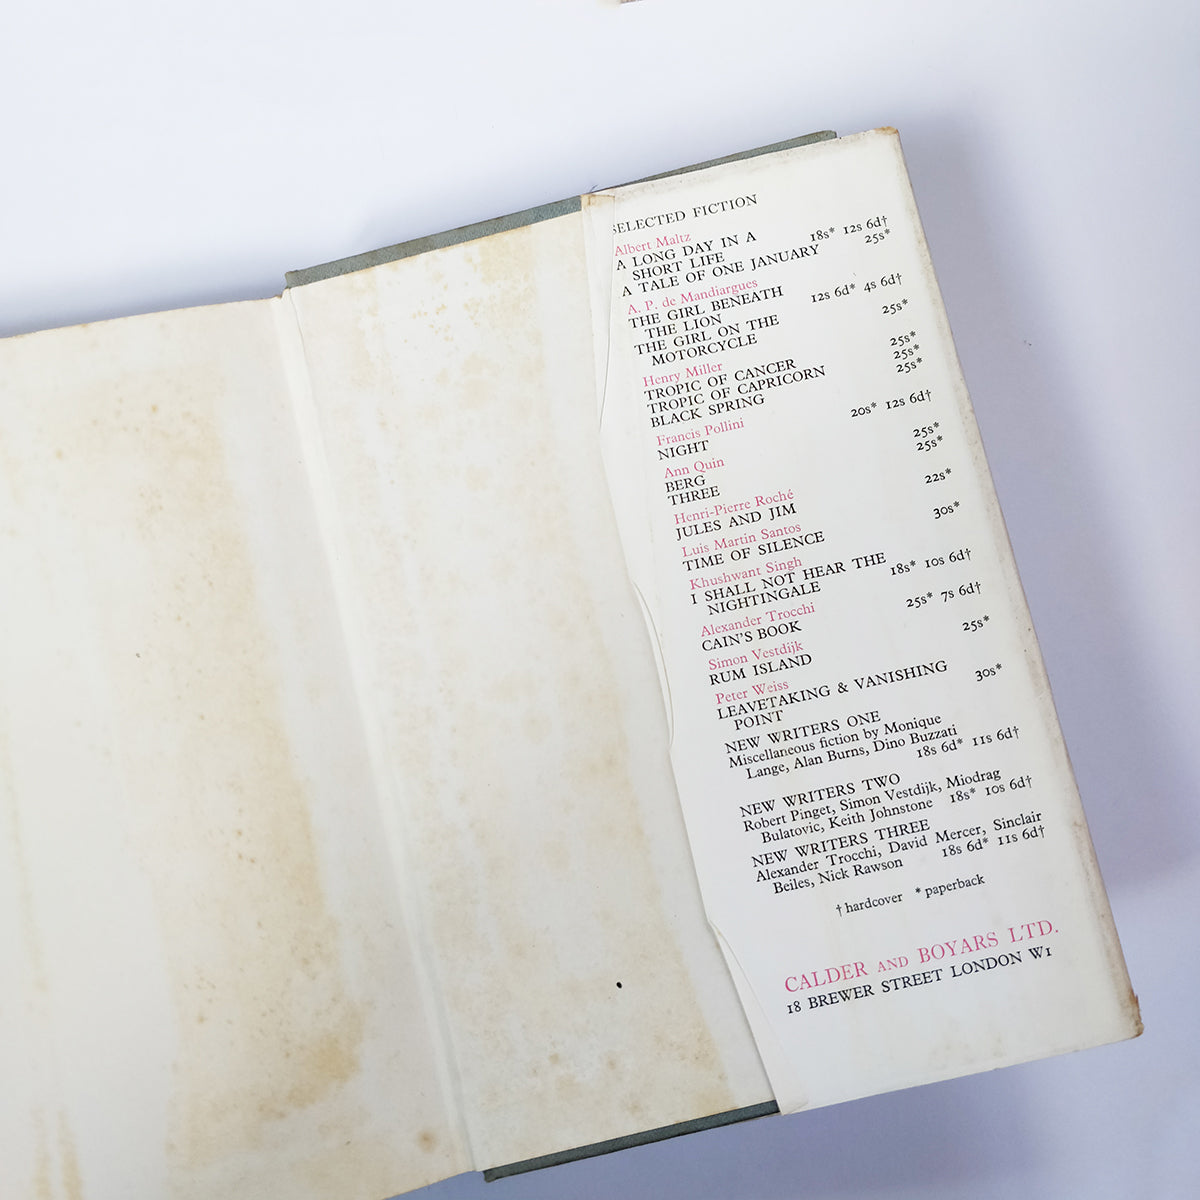 SELECTED FICTION
Albert Maltz
A LONG DAY IN A
SHORT LIFE 18s* 12s 6d†
A TALE OF ONE JANUARY 25s*
A. P. de Mandiargues
THE GIRL BENEATH
THE LION 12s 6d* 4s 6d†
THE GIRL ON THE
MOTORCYCLE 25s*
Henry Miller
TROPIC OF CANCER 25s*
TROPIC OF CAPRICORN 25s*
BLACK SPRING 25s*
Francis Pollini
NIGHT 20s* 12s 6d†
Ann Quin
BERG 25s*
THREE 25s*
Henri-Pierre Roché
JULES AND JIM 22s*
Luis Martin Santos
TIME OF SILENCE 30s*
Khushwant Singh
I SHALL NOT HEAR THE
NIGHTINGALE 18s* 10s 6d†
Alexander Trocchi
CAIN'S BOOK 25s* 7s 6d†
Simon Vestdijk
RUM ISLAND 25s*
Peter Weiss
LEAVETAKING & VANISHING
POINT 30s*
NEW WRITERS ONE
Miscellaneous fiction by Monique
Lange, Alan Burns, Dino Buzzati
18s 6d* 11s 6d†
NEW WRITERS TWO
Robert Pinget, Simon Vestdijk, Miodrag
Bulatovic, Keith Johnstone 18s* 10s 6d†
NEW WRITERS THREE
Alexander Trocchi, David Mercer, Sinclair
Beiles, Nick Rawson 18s 6d* 11s 6d†
† hardcover * paperback
CALDER AND BOYARS LTD.
18 BREWER STREET LONDON W1